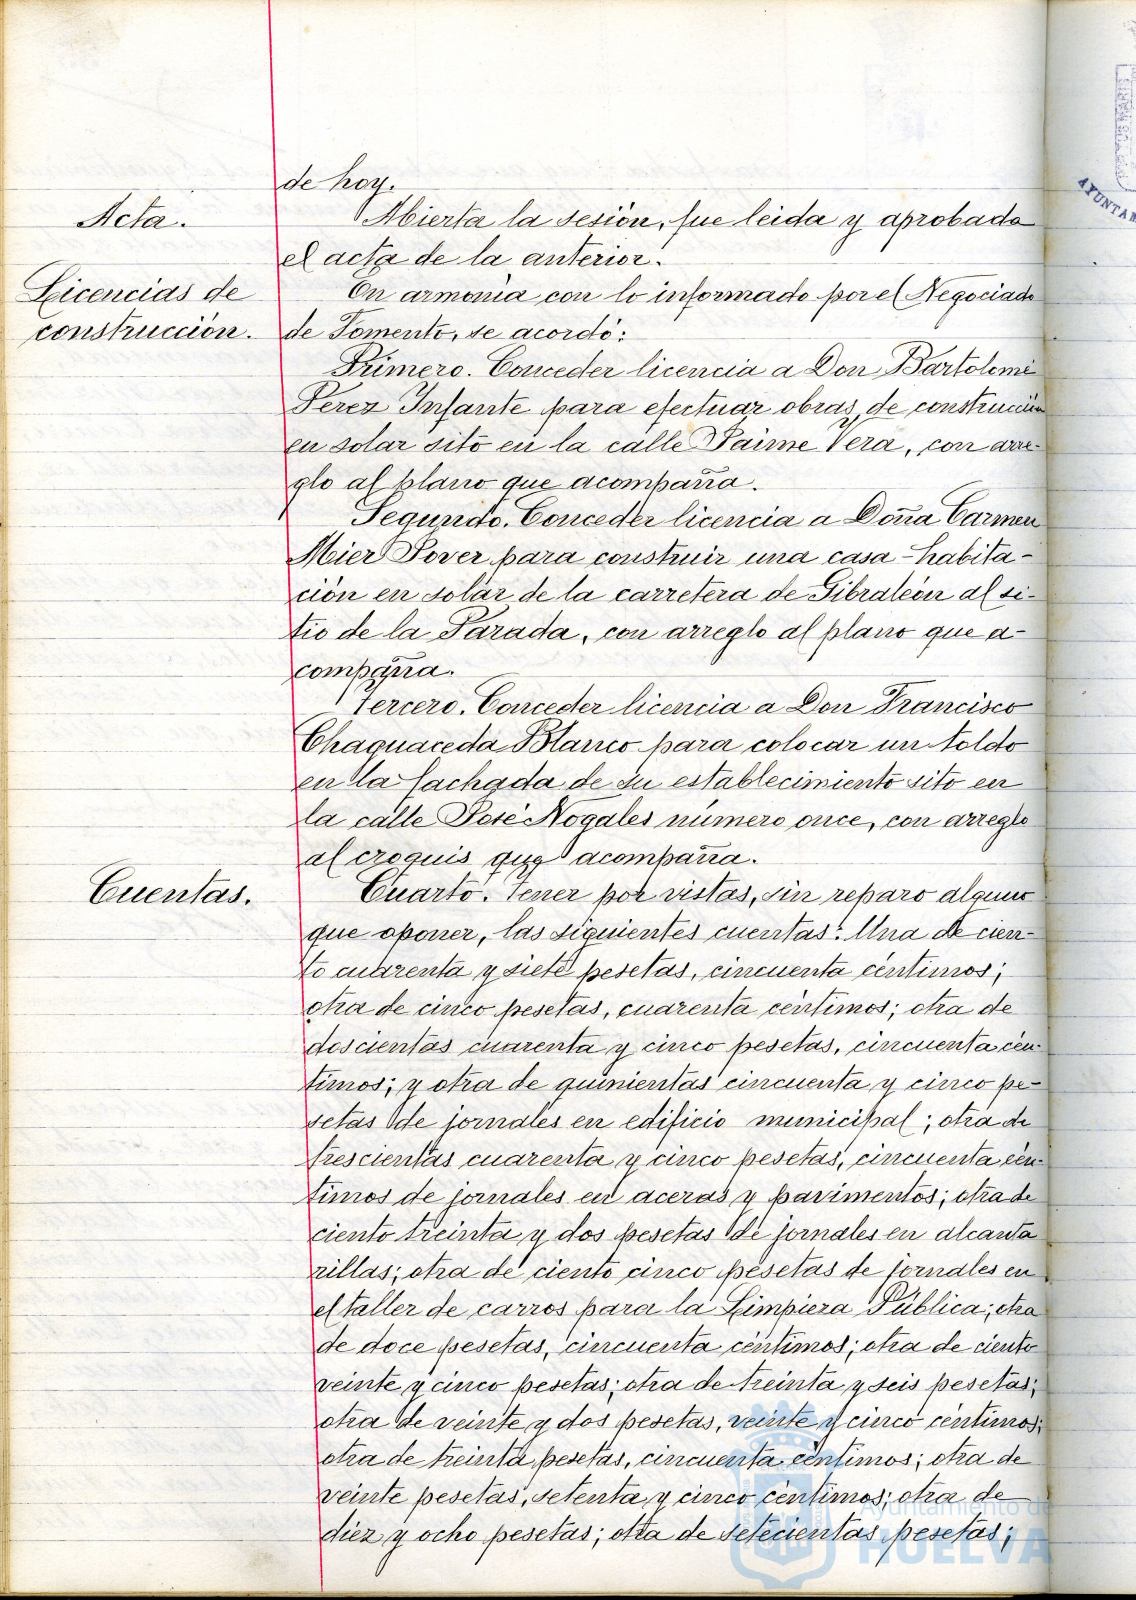 de hoy.
Acta.
Abierta la sesión, fue leida y aprobada
el acta de la anterior.
Licencias de
construcción.
En armonia con lo informado por el Negociado
de Fomento, se acordó:
Primero. Conceder licencia a Don Bartolomé
Perez Infante para efectuar obras de construcción
en solar sito en la calle Jaime Vera, con arre-
glo al plano que acompaña.
Segundo. Conceder licencia a Doña Carmen
Mier Jover para construir una casa-habita-
ción en solar de la carretera de Gibraleón al si-
tio de la Parada, con arreglo al plano que a-
compaña.
Tercero. Conceder licencia a Don Francisco
Chaguaceda Blanco para colocar un toldo
en la fachada de su establecimiento sito en
la calle José Nogales número once, con arreglo
al croquis que acompaña.
Cuentas.
Cuarto. Tener por vistas, sin reparo alguno
que oponer, las siguientes cuentas: Una de cien-
to cuarenta y siete pesetas, cincuenta céntimos;
otra de cinco pesetas, cuarenta céntimos; otra de
doscientas cuarenta y cinco pesetas, cincuenta cén-
timos; y otra de quinientas cincuenta y cinco pe-
setas de jornales en edificio municipal; otra de
trescientas cuarenta y cinco pesetas, cincuenta cén-
timos de jornales en aceras y pavimentos; otra de
ciento treinta y dos pesetas de jornales en alcanta
rillas; otra de ciento cinco pesetas de jornales en
el taller de carros para la Limpieza Pública; otra
de doce pesetas, cincuenta céntimos; otra de ciento
veinte y cinco pesetas; otra de treinta y seis pesetas;
otra de veinte y dos pesetas, veinte y cinco céntimos;
otra de treinta pesetas, cincuenta céntimos; otra de
veinte pesetas, setenta y cinco céntimos; otra de
diez y ocho pesetas; otra de setecientas pesetas;
Ayuntamiento de
HUELVA